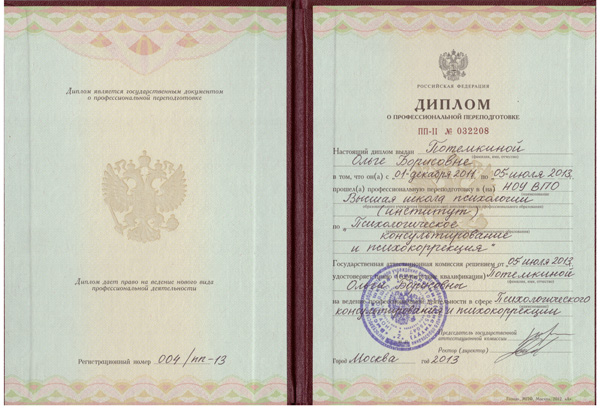 Диплом является государственным документом
о профессиональной переподготовке
Диплом дает право на ведение нового вида
профессиональной деятельности
Регистрационный номер 004/пп-13
РОССИЙСКАЯ ФЕДЕРАЦИЯ
ДИПЛОМ
О ПРОФЕССИОНАЛЬНОЙ ПЕРЕПОДГОТОВКЕ
ПП-II № 032208
Настоящий диплом выдан Потемкиной
(фамилия, имя, отчество)
Ольге Борисовне
в том, что он(а) с 01 декабря 2011 по 05 июля 2013
прошел(а) профессиональную переподготовку в (на) НОУ ВПО
Высшая школа психологии
(институт)
по "Психологическое
консультирование
и психокоррекция"
Государственная аттестационная комиссия решением от 05 июля 2013
удостоверяет квалификации) Потемкиной
(фамилия, имя, отчество)
Ольги Борисовны
на ведение профессиональной деятельности в сфере Психологического
консультирования и психокоррекции
Председатель государственной
аттестационной комиссии
Ректор (директор)
Город Москва год 2013